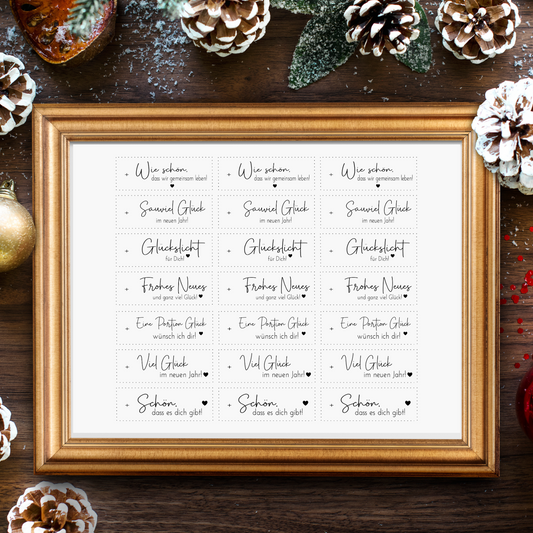 Wie schön, Wie schön, Wie schön,
dass wir gemeinsam leben! dass wir gemeinsam leben! dass wir gemeinsam leben!
Sauviel Glück Sauviel Glück Sauviel Glück
im neuen Jahr! im neuen Jahr! im neuen Jahr!
Glückslicht Glückslicht Glückslicht
für Dich! für Dich! für Dich!
Frohes Neues Frohes Neues Frohes Neues
und ganz viel Glück! und ganz viel Glück! und ganz viel Glück!
Eine Portion Glück Eine Portion Glück Eine Portion Glück
wünsch ich dir! wünsch ich dir! wünsch ich dir!
Viel Glück Viel Glück Viel Glück
im neuen Jahr! im neuen Jahr! im neuen Jahr!
Schön, Schön, Schön,
dass es dich gibt! dass es dich gibt! dass es dich gibt!